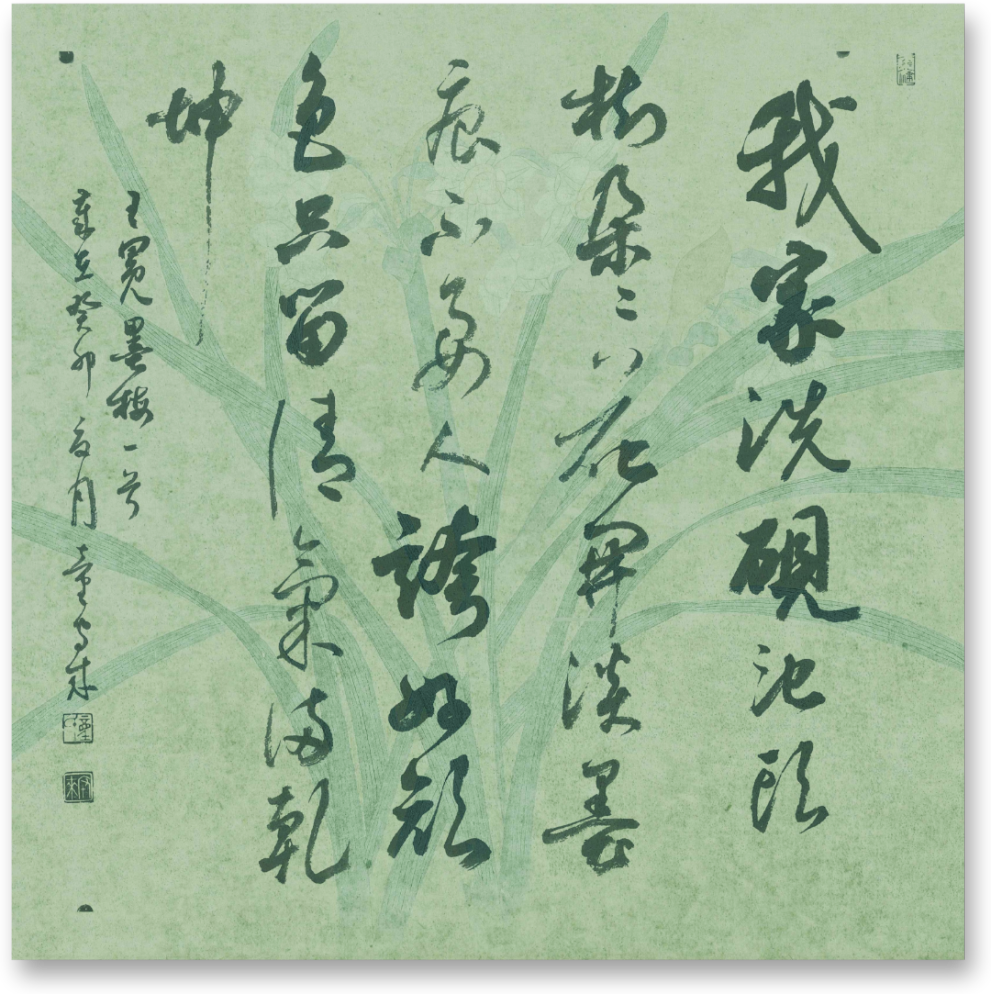 我家洗硯池頭
樹朵〻花開淡墨
痕不要人誇好顏
色只留清氣滿乾
坤
王冕墨梅一首
歲在癸卯夏月童